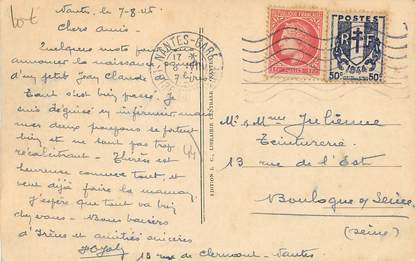 Nantes, le 7-8-45
Chers amis -
Quelques mots pour vous
annoncer la naissance
d'un petit Jean Claude de 7 livres
Tout s'est bien passé. Je
suis déguisé en infirmier mais
mes deux poupons se portent
bien et ne sont pas trop
récalcitrants - Thérèse est
heureuse comme tout, et
veut déjà faire la maman.
J'espère que tout va bien
chez vous - Bons baisers
d'Irène et amitiés sincères
13 rue de Clermont - Nantes
NANTES-GARE
17
POSTES
50c 50c
EDITION L. C., LIBRAIRIE CENTRALE
M. & Mme Julienne
Teinturerie
13 rue de l'Est
Boulogne s/ Seine
(Seine)